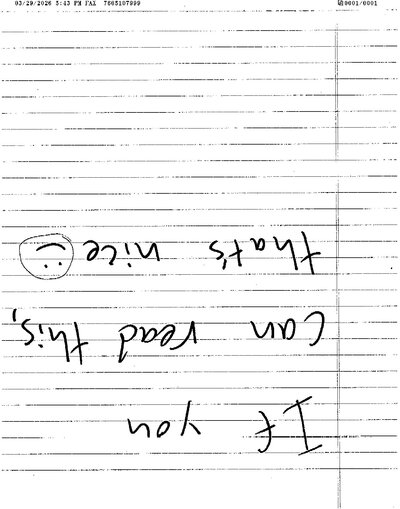 03/29/2026 5:43 PM FAX 7605107999
0001/0001
If you
can read this,
that's nice